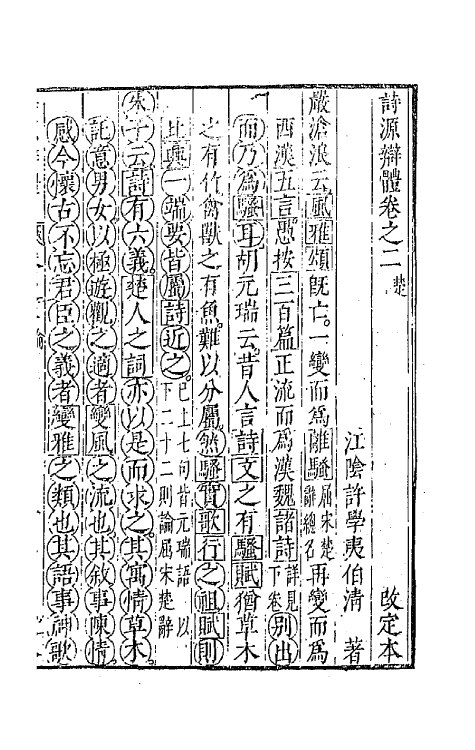 詩源辯體卷之二 楚 改定本
江陰許學夷伯清 著
嚴滄浪云風雅頌旣亡一變而爲離騷屈宋楚辭總名再變而爲
西漢五言愚按三百篇正流而爲漢魏諸詩詳見下卷別出
而乃爲騷耳胡元瑞云昔人言詩文之有騷賦猶草木
之有竹禽獸之有魚難以分屬然騷實歌行之祖賦則
比興一端要皆屬詩近之已上七句皆元瑞語以下二十二則論屈宋楚辭
朱子云詩有六義楚人之詞亦以是而求之其寓情草木
託意男女以極遊觀之適者變風之流也其敘事陳情
感今懷古不忘君臣之義者變雅之類也其語事神歌